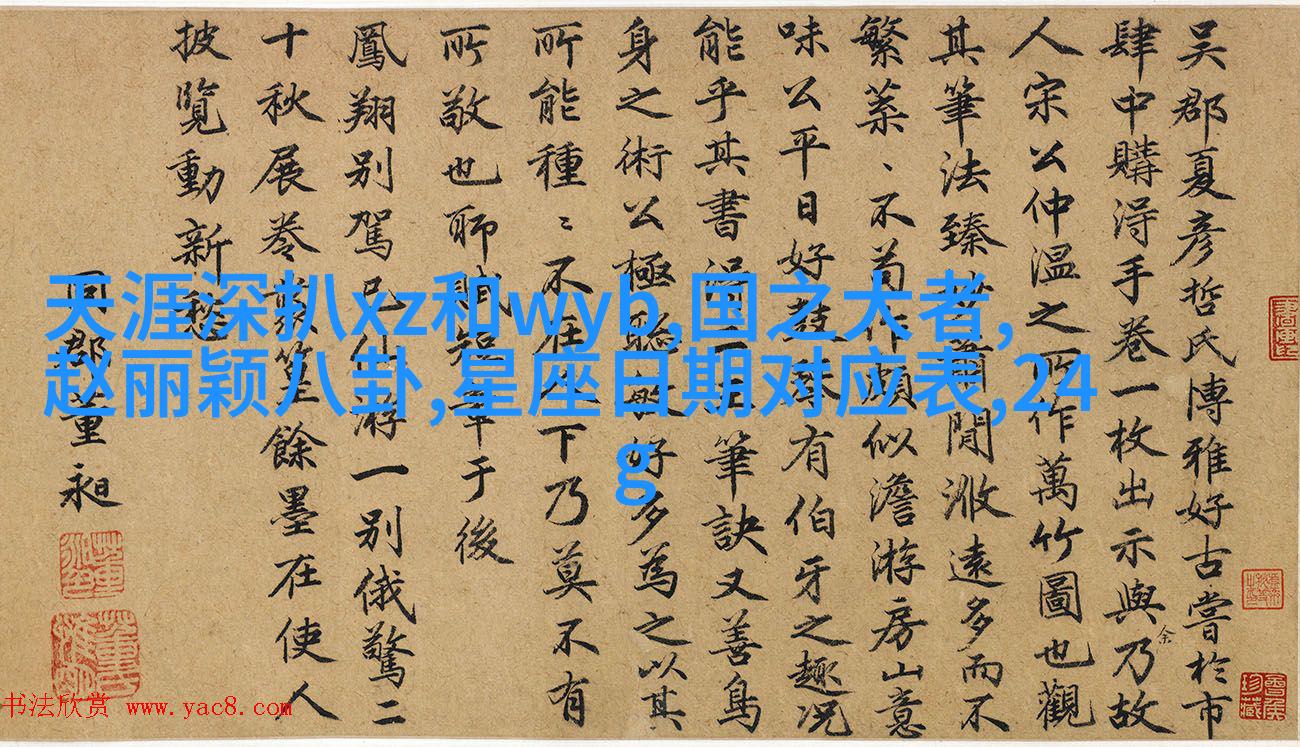 吴郡夏彦哲氏博雅好古嘗於市
肆中購得手卷一枚出示與余乃故
人宋公仲温之所作萬竹圖也觀
其筆法臻
閒淑遠多而不
繁蕪、不苟作頗似澹游房山意
味公平日好鼓
有伯牙之趣况
能乎其書得二王筆訣又善鳥
身之術公極聡敏好多為之以其
所能種〻不在
下乃莫不有
所敬也聊賦短章于後
鳳翔別駕
游一别俄驚二
十秋展卷
餘墨在使人
披覽動新愁
同郡董昶
天涯深扒xz和wyb,国之大者,
赵丽颖八卦,星座日期对应表,24
g
书法欣赏 www.yac8.com